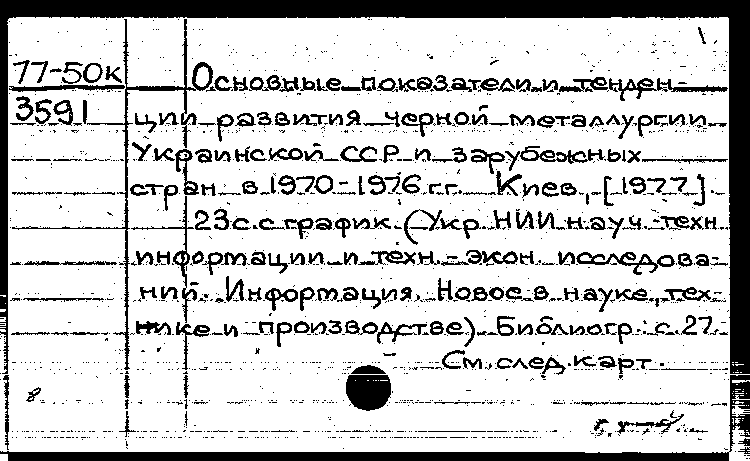 1.
77-50к Основные показатели и тенден-
3591 ции развития черной металлургии
Украинской ССР и зарубежных
стран в 1970-1976 г.г. Киев, [1977].
23 с. с график. (Укр. НИИ науч.-техн
информации и техн.-экон. исследова-
ний. Информация. Новое в науке, тех-
нике и производстве) Библиогр.: с. 27.
См. след. карт.
8